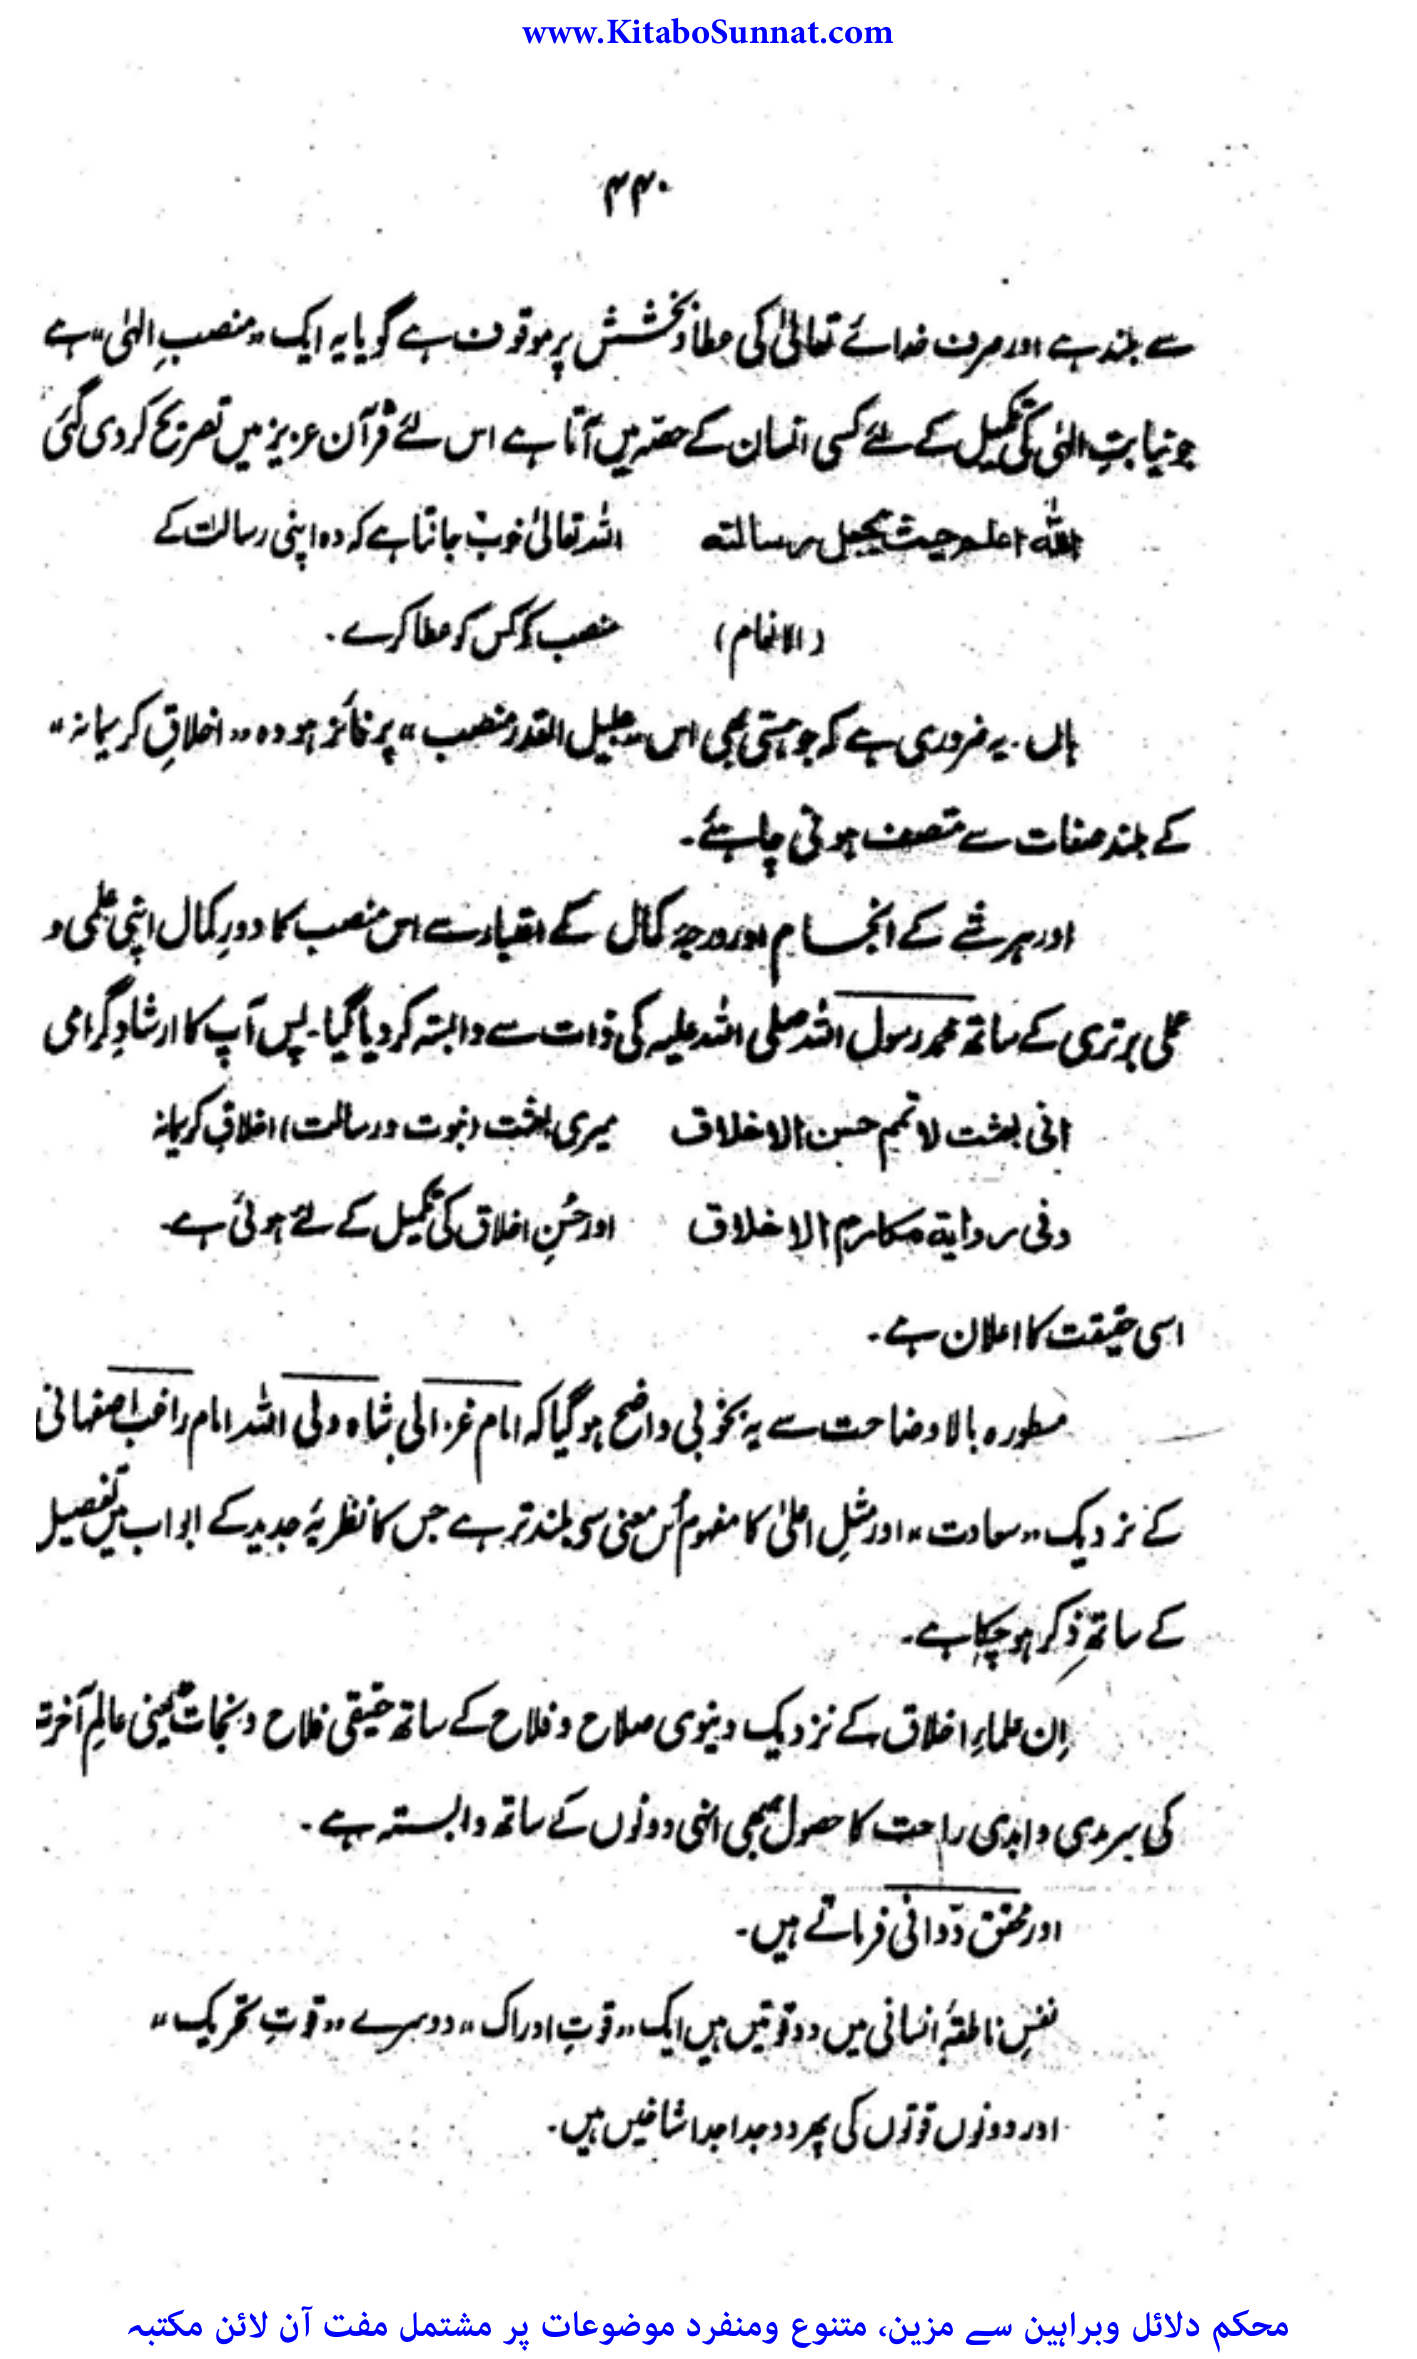 www.KitaboSunnat.com
۴۴۰
سے بلند ہے اور صرف خدائے تعالیٰ کی عطاؤ بخشش پر موقوف ہے گویا یہ ایک "منصبِ الہٰی" ہے
جو نیابتِ الہٰی کی تکمیل کے لئے کسی انسان کے حصّہ میں آتا ہے اس لئے قرآن عزیز میں تصریح کردی گئی
اللہ اعلم حیث یجعل رسالتہ اللہ تعالیٰ خوب جانتا ہے کہ وہ اپنی رسالت کے
(الانعام) منصب کو کس کو عطا کرے۔
ہاں۔ یہ ضروری ہے کہ جو ہستی بھی اس "جلیل القدر منصب" پر فائز ہو وہ "اخلاقِ کریمانہ"
کے بلند صفات سے متصف ہونی چاہئے۔
اور ہر شے کے انجام اور درجۂ کمال کے اعتبار سے اس منصب کا دورِ کمال اپنی علمی و
عملی برتری کے ساتھ محمد رسول اللہ صلی اللہ علیہ کی ذات سے وابستہ کر دیا گیا۔ پس آپ کا ارشادِ گرامی
انی بعثت لاتمم حسن الاخلاق میری بعثت (نبوت و رسالت) اخلاقِ کریمانہ
وفی روایة مکارم الاخلاق اور حُسنِ اخلاق کی تکمیل کے لئے ہوئی ہے۔
اسی حقیقت کا اعلان ہے۔
مسطورہ بالا وضاحت سے یہ بخوبی واضح ہو گیا کہ امام غزالی شاہ ولی اللہ امام راغب اصفہانی
کے نزدیک "سعادت" اور مثلِ اعلیٰ کا مفہوم اُس معنی سی بلند تر ہے جس کا نظریۂ جدید کے ابواب میں تفصیل
کے ساتھ ذکر ہو چکا ہے۔
اِن علماءِ اخلاق کے نزدیک دینوی صلاح و فلاح کے ساتھ حقیقی فلاح و نجات یعنی عالمِ آخرت
کی سرمدی و ابدی راحت کا حصول بھی انہی دونوں کے ساتھ وابستہ ہے۔
اور محقق دوّانی فرماتے ہیں۔
نفسِ ناطقۂ انسانی میں دو قوتیں ہیں ایک "قوتِ ادراک" دوسرے "قوتِ تحریک"
اور دونوں قوتوں کی پھر دو جدا جدا شاخیں ہیں۔
محکم دلائل وبراہین سے مزین، متنوع ومنفرد موضوعات پر مشتمل مفت آن لائن مکتبہ